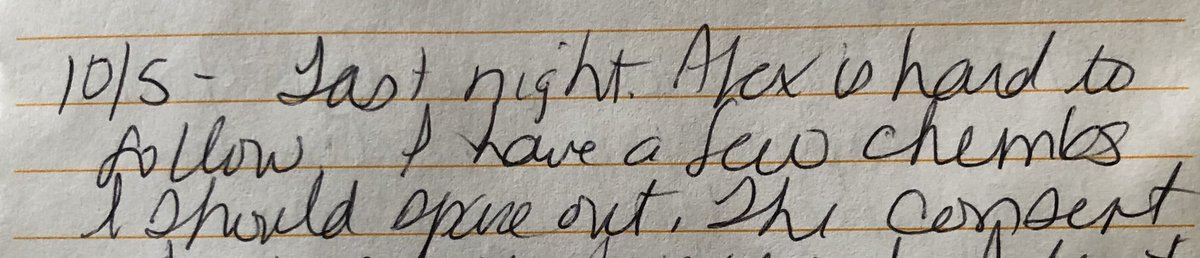 10/5 - Last night. Alex is hard to
follow. I have a few chembs
I should space out. The consent